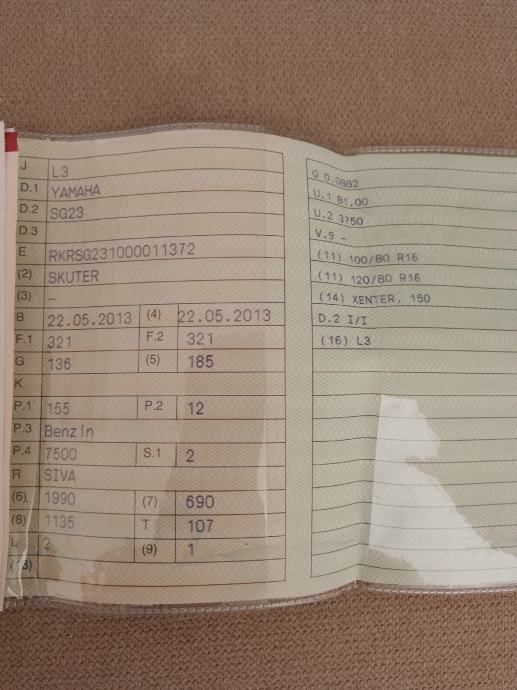 J L3
D.1 YAMAHA
D.2 SG23
D.3
E RKRSG231000011372
(2) SKUTER
(3) –
B 22.05.2013 (4) 22.05.2013
F.1 321 F.2 321
G 136 (5) 185
K
P.1 155 P.2 12
P.3 Benzin
P.4 7500 S.1 2
R SIVA
(6) 1990 (7) 690
(8) 1135 T 107
L 2 (9) 1
(13)
Q 0.0882
U.1 81,00
U.2 3750
V.9 -
(11) 100/80 R16
(11) 120/80 R16
(14) XENTER, 150
D.2 I/I
(16) L3